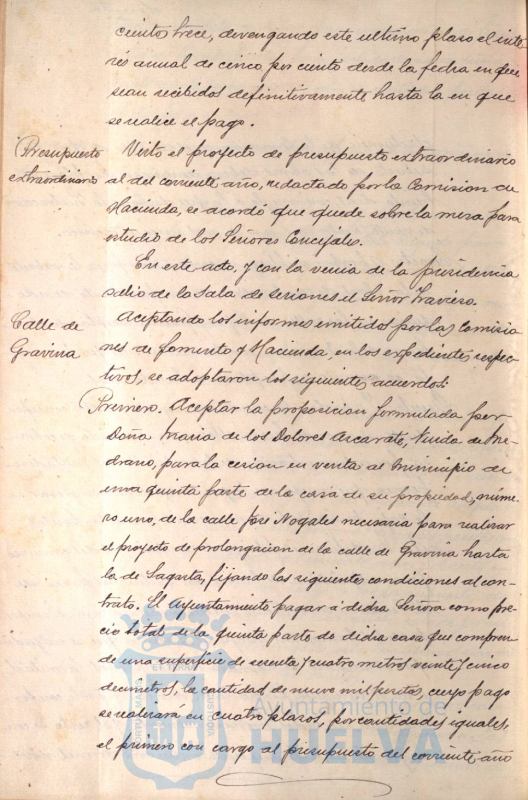 cientos trece, devengando este ultimo plaso el inte
rés anual de cinco por ciento desde la fecha en que
sean recibidos definitivamente hasta la en que
se realice el pago.
Presupuesto
extraordinario
Visto el proyecto de presupuesto extraordinario
al del corriente año, redactado por la Comision de
Hacienda, se acordó que quede sobre la mesa para
estudio de los Señores Concejales.
En este acto, y con la venia de la presidencia
salio de la Sala de sesiones el Señor Traviero.
Calle de
Gravina
Aceptando los informes emitidos por las comisio
nes de fomento y Hacienda, en los expedientes respec-
tivos, se adoptaron los siguientes acuerdos:
Primero. Aceptar la proposicion formulada por
Doña Maria de los Dolores Ascarate, Viuda de Me-
drano, para la cesion en venta al Municipio de
una quinta parte de la casa de su propiedad, núme-
ro uno, de la calle José Nogales necesaria para realizar
el proyecto de prolongacion de la calle de Gravina hasta
la de Sagasta, fijando las siguientes condiciones al con-
trato. El Ayuntamiento pagar á dicha Señora como pre
cio total de la quinta parte de dicha casa que compren
de una superficie de sesenta y cuatro metros veinte y cinco
decimetros, la cantidad de nueve mil pesetas, cuyo pago
se realizará en cuatro plazos, por cantidades iguales,
el primero con cargo al presupuesto del corriente año
Ayuntamiento de
HUELVA